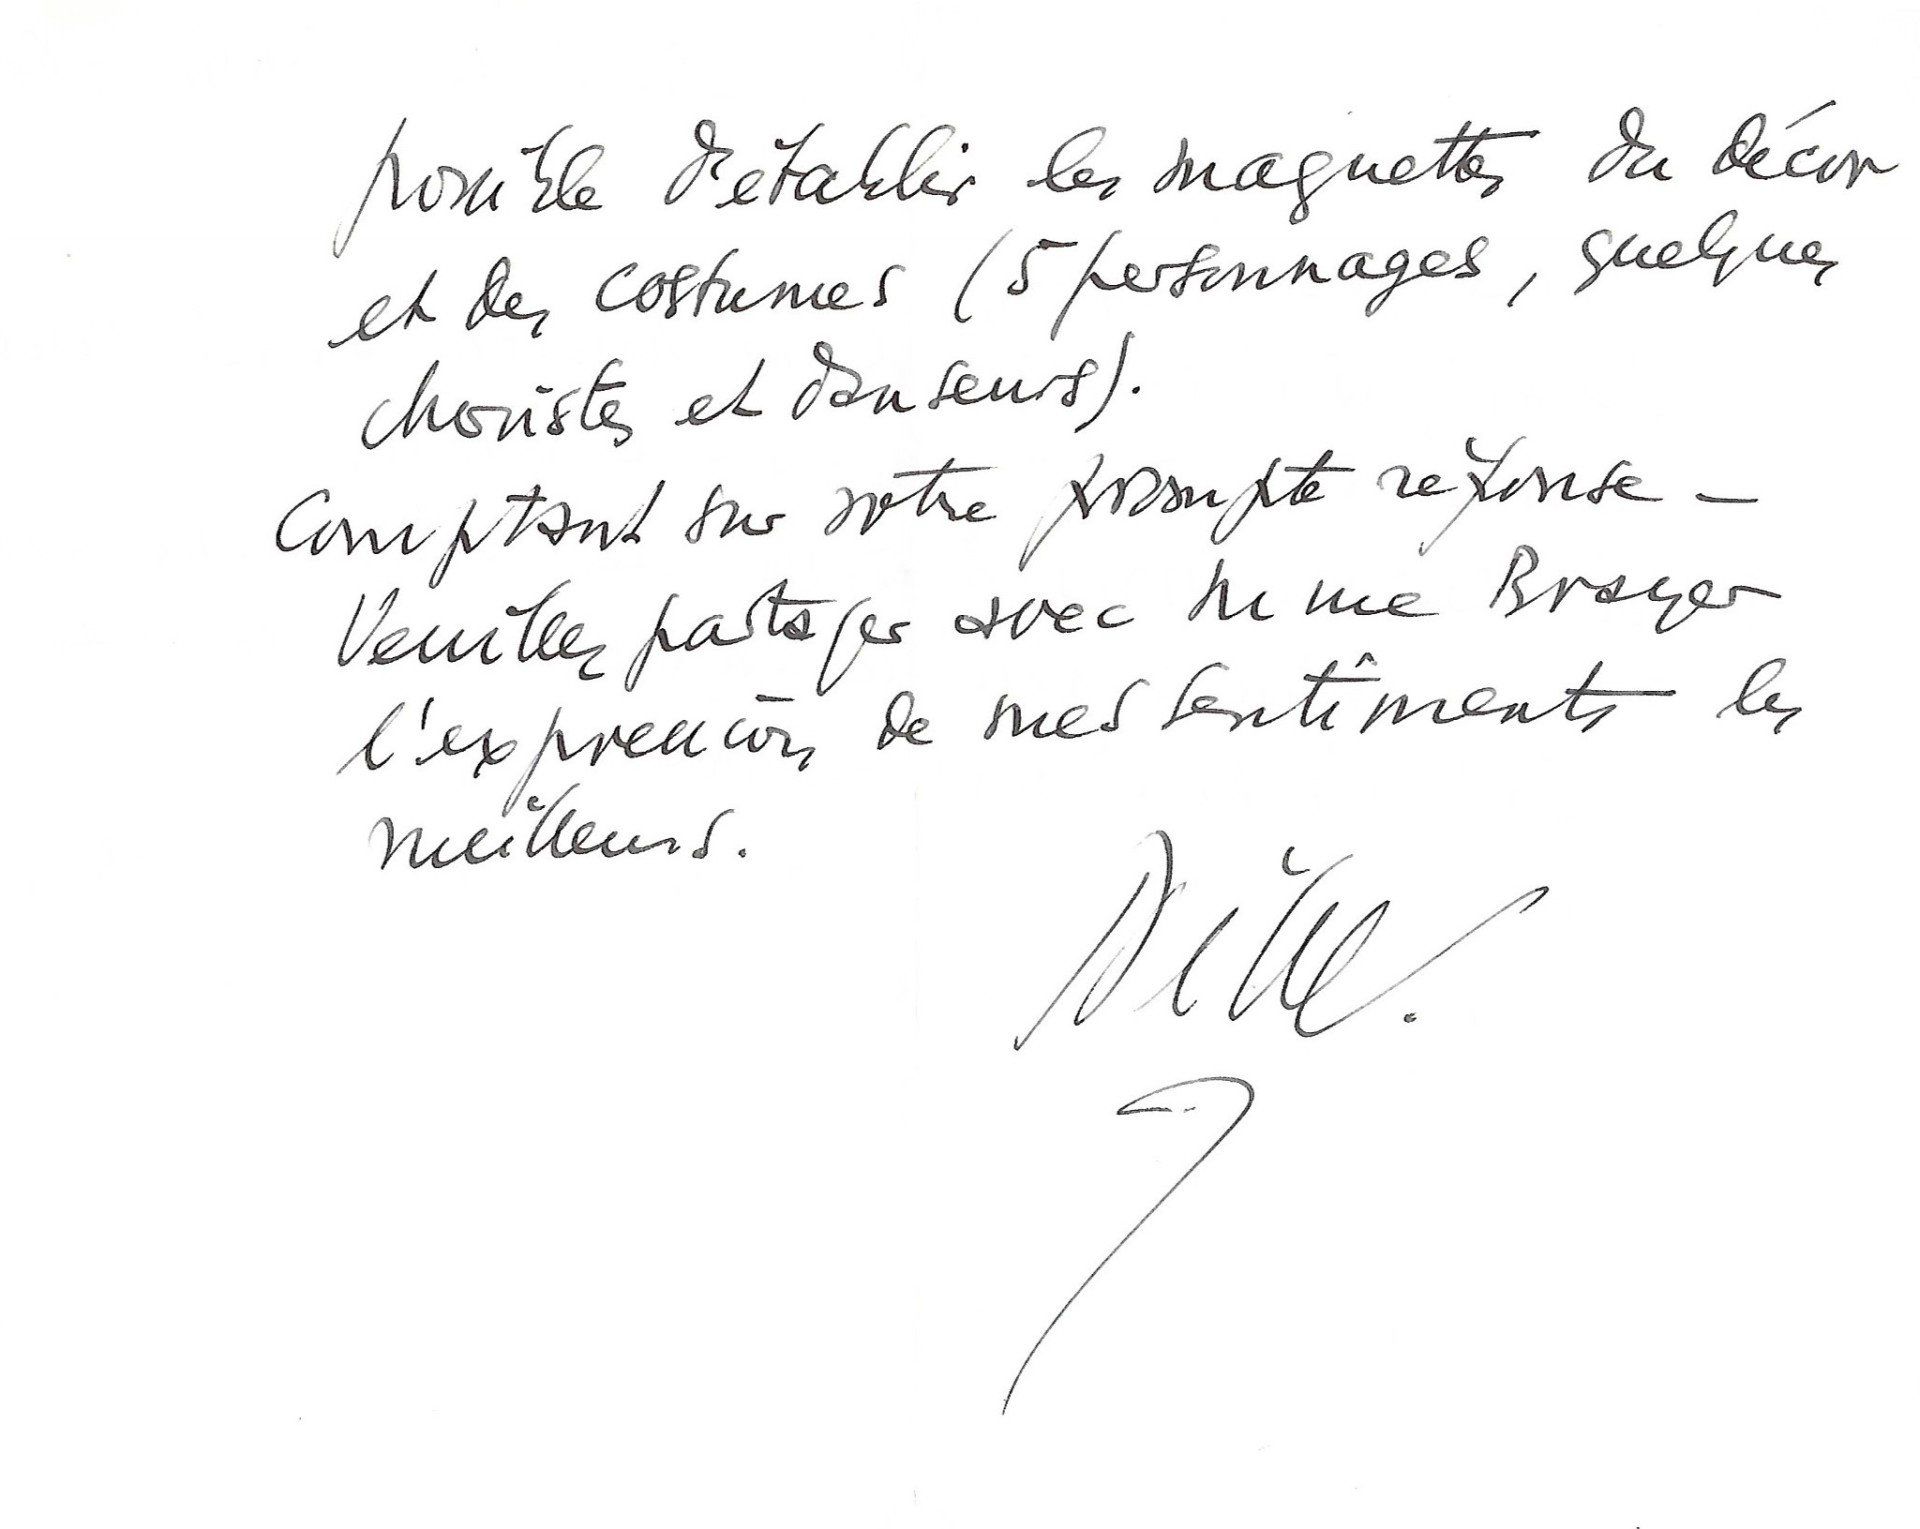 possible d'établir les maquettes du décor
et des costumes (5 personnages, quelques
choristes et danseurs).
Comptant sur votre prompte réponse –
Veuillez partager avec Mme Brayer
l'expression de mes sentiments les
meilleurs.